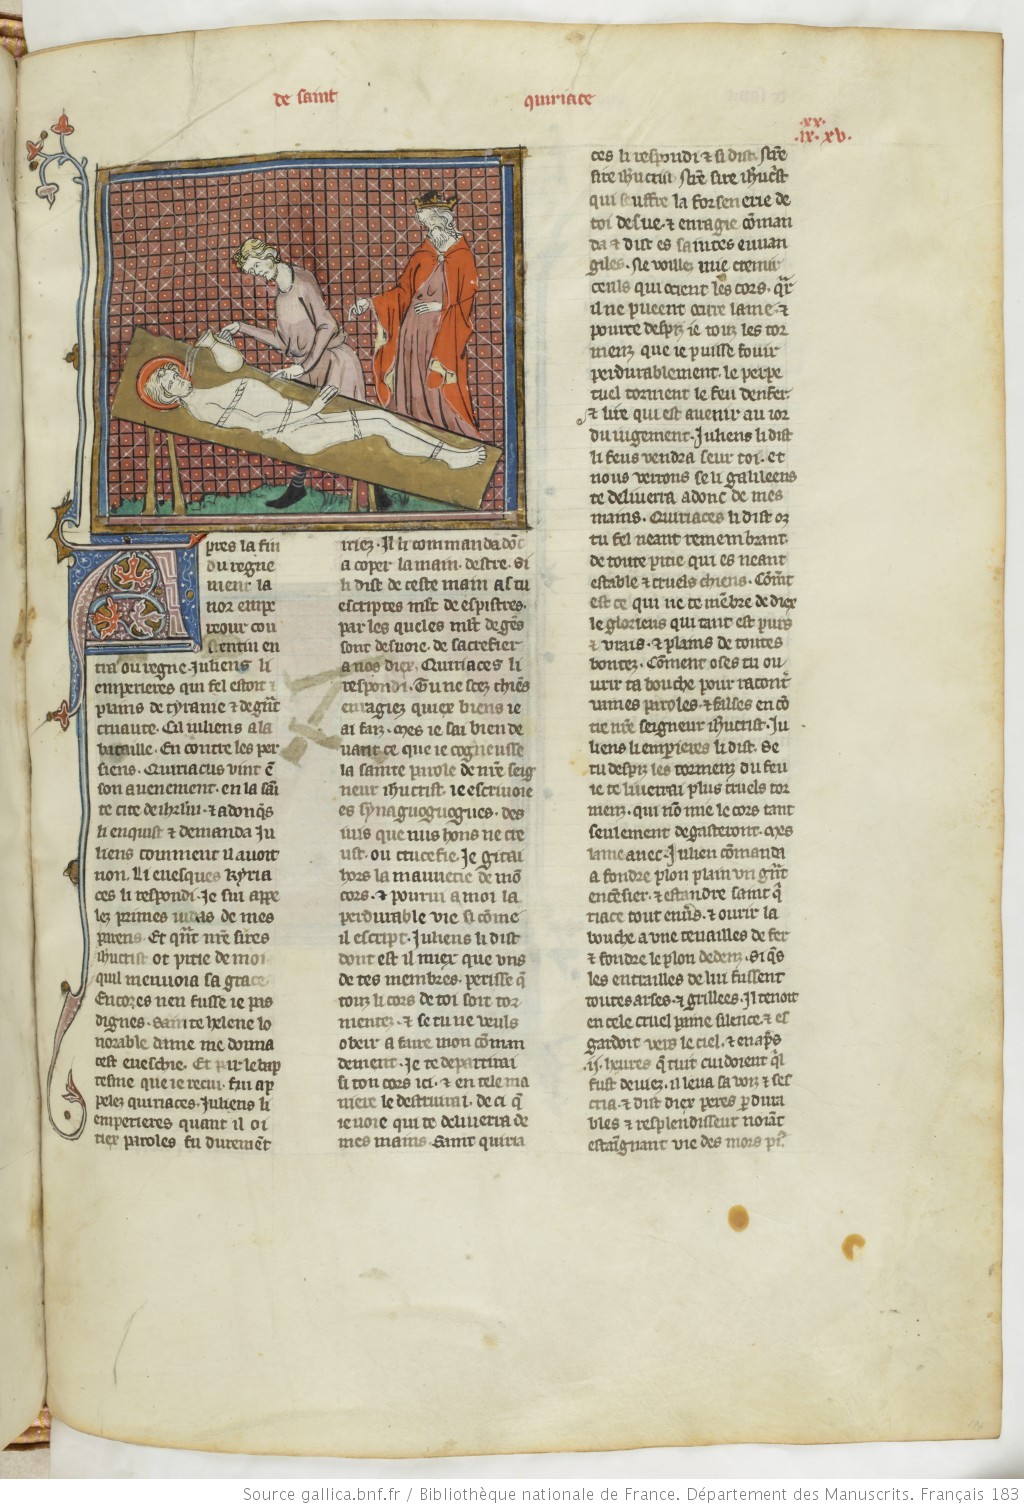 de saint quiriace
.xx.
.ix. xv.
Apres la fin
du regne
menz la
nor empe
reour cou
sentin en
tra ou regne. Juliens li
emperieres qui fel estoit ⁊
plains de tyranie ⁊ de grãt
cruaute. Cil iuliens a la
bataille. En contre les per
siens. Quiriacus vint ẽ
son avenement. en la sãi
te cite de ihrl̃m. ⁊ adonq̃s
li enquist ⁊ demanda Ju
liens comment il avoit
non. Li evesques kyria
ces li respondi. Je sui appe
lez primes iudas de mes
parens. Et qñt nr̃e sires
ihucrist ot pitie de moi
quil menvoia sa grace.
Encores nen fusse ie pas
dignes. Sainte helene lo
norable dame me donna
cest eveschie. Et par le bap
tesme que ie recui. fui ap
pelez quiriaces. Juliens li
emperieres quant il oi
tiex paroles fu durement
iriez. Il li commanda dõc
a coper la main. destre. Si
li dist de ceste main as tu
escriptes ml̃t de espistres.
par les queles ml̃t de gẽs
sont desvoie. de sacrefier
a nos diex. Quiriaces li
respondi. Tu ne scez chiẽs
enragiez quiex biens ie
ai faiz. Mes ie sai bien de
uant ce que ie cogneusse
la sainte parole de nr̃e seig
neur ihucrist. ie escrivoie
es synaguoguogues. des
iuis que nuis hons ne cre
ust. ou crucefie. Je gitai
hors la mauvetie de mõ
cors. ⁊ pourui a moi la
perdurable vie si cõme
il escript. Juliens li dist
dont est il miex que uns
de tes membres. perisse q̃
touz li cors de toi soit tor
mentez. ⁊ se tu ne veuls
obeir a faire mon cõman
dement. Je te departirai
si ton cors ici. ⁊ en tele ma
niere le destruirai. de ci q̃
ie voie qui te deliverra de
mes mains. Saint quiria
ces li respondi ⁊ si dist. Nr̃e
sire ihucrist Nr̃e sire ihucrist
qui seuffre la forsenerie de
toi desve. ⁊ enragie cõman
da ⁊ dist es saintes euuan
giles. Ne voillez mie cremir
ceuls qui ocient les cors. qr̃
il ne pueent ocirre lame. ⁊
pource despiz ie touz les tor
menz que ie puisse fouir
perdurablement. le perpe
tuel torment le feu denfer.
⁊ lire qui est avenir au ior
du iugement. Juliens li dist
li feus vendra seur toi. et
nous verrons se li galileens
te deliverra adonc de mes
mains. Quiriaces li dist oz
tu fel neant remembrant.
de toute pitie qui es neant
estable ⁊ cruels chiens. Cõmt
est ce qui ne te mẽbre de diex
le glorieus qui tant est purs
⁊ vrais. ⁊ plains de toutes
bontez. Cõment oses tu ou
urir ta bouche pour racont̃
vaines paroles. ⁊ fausses en cõ
tre nr̃e seigneur ihucrist. Ju
liens li emperieres li dist. Se
tu despiz les tormenz du feu
ie te liverrai plus cruels tor
menz. qui nõ mie le cors tant
seulement degasteront. mes
lame avec. Julien cõmanda
a fondre plon plain un grãt
encẽsier. ⁊ estandre saint q̃
riace tout envers. ⁊ ouvrir la
bouche a une tenailles de fer
⁊ fondre le plon dedenz. si q̃s
les entrailles de lui fussent
toutes arses. ⁊ grillees. Il tenoit
en cele cruel paine silence. ⁊ es
gardoit vers le ciel. ⁊ en ap̃s
.ij. heures q̃ tuit cuidoient q̃l
fust deviez. il leva sa voiz ⁊ ses
cria. ⁊ dist diex peres pdura
bles ⁊ resplendissent noiãt
estaingnant vie des mors pr̃.
Source gallica.bnf.fr / Bibliothèque nationale de France. Département des Manuscrits. Français 183